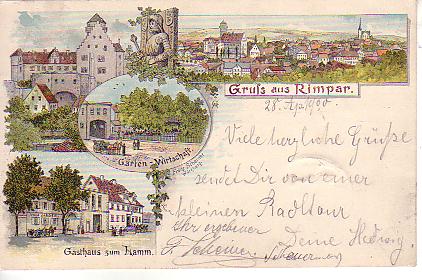 Gruss aus Rimpar.
28. Ap. 1900
Garten-Wirtschaft
Viele herzliche Grüße
sendet Dir von einer
kleinen Radltour
Deine Hedwig
Ihr ergebener
Gasthaus zum Lamm.